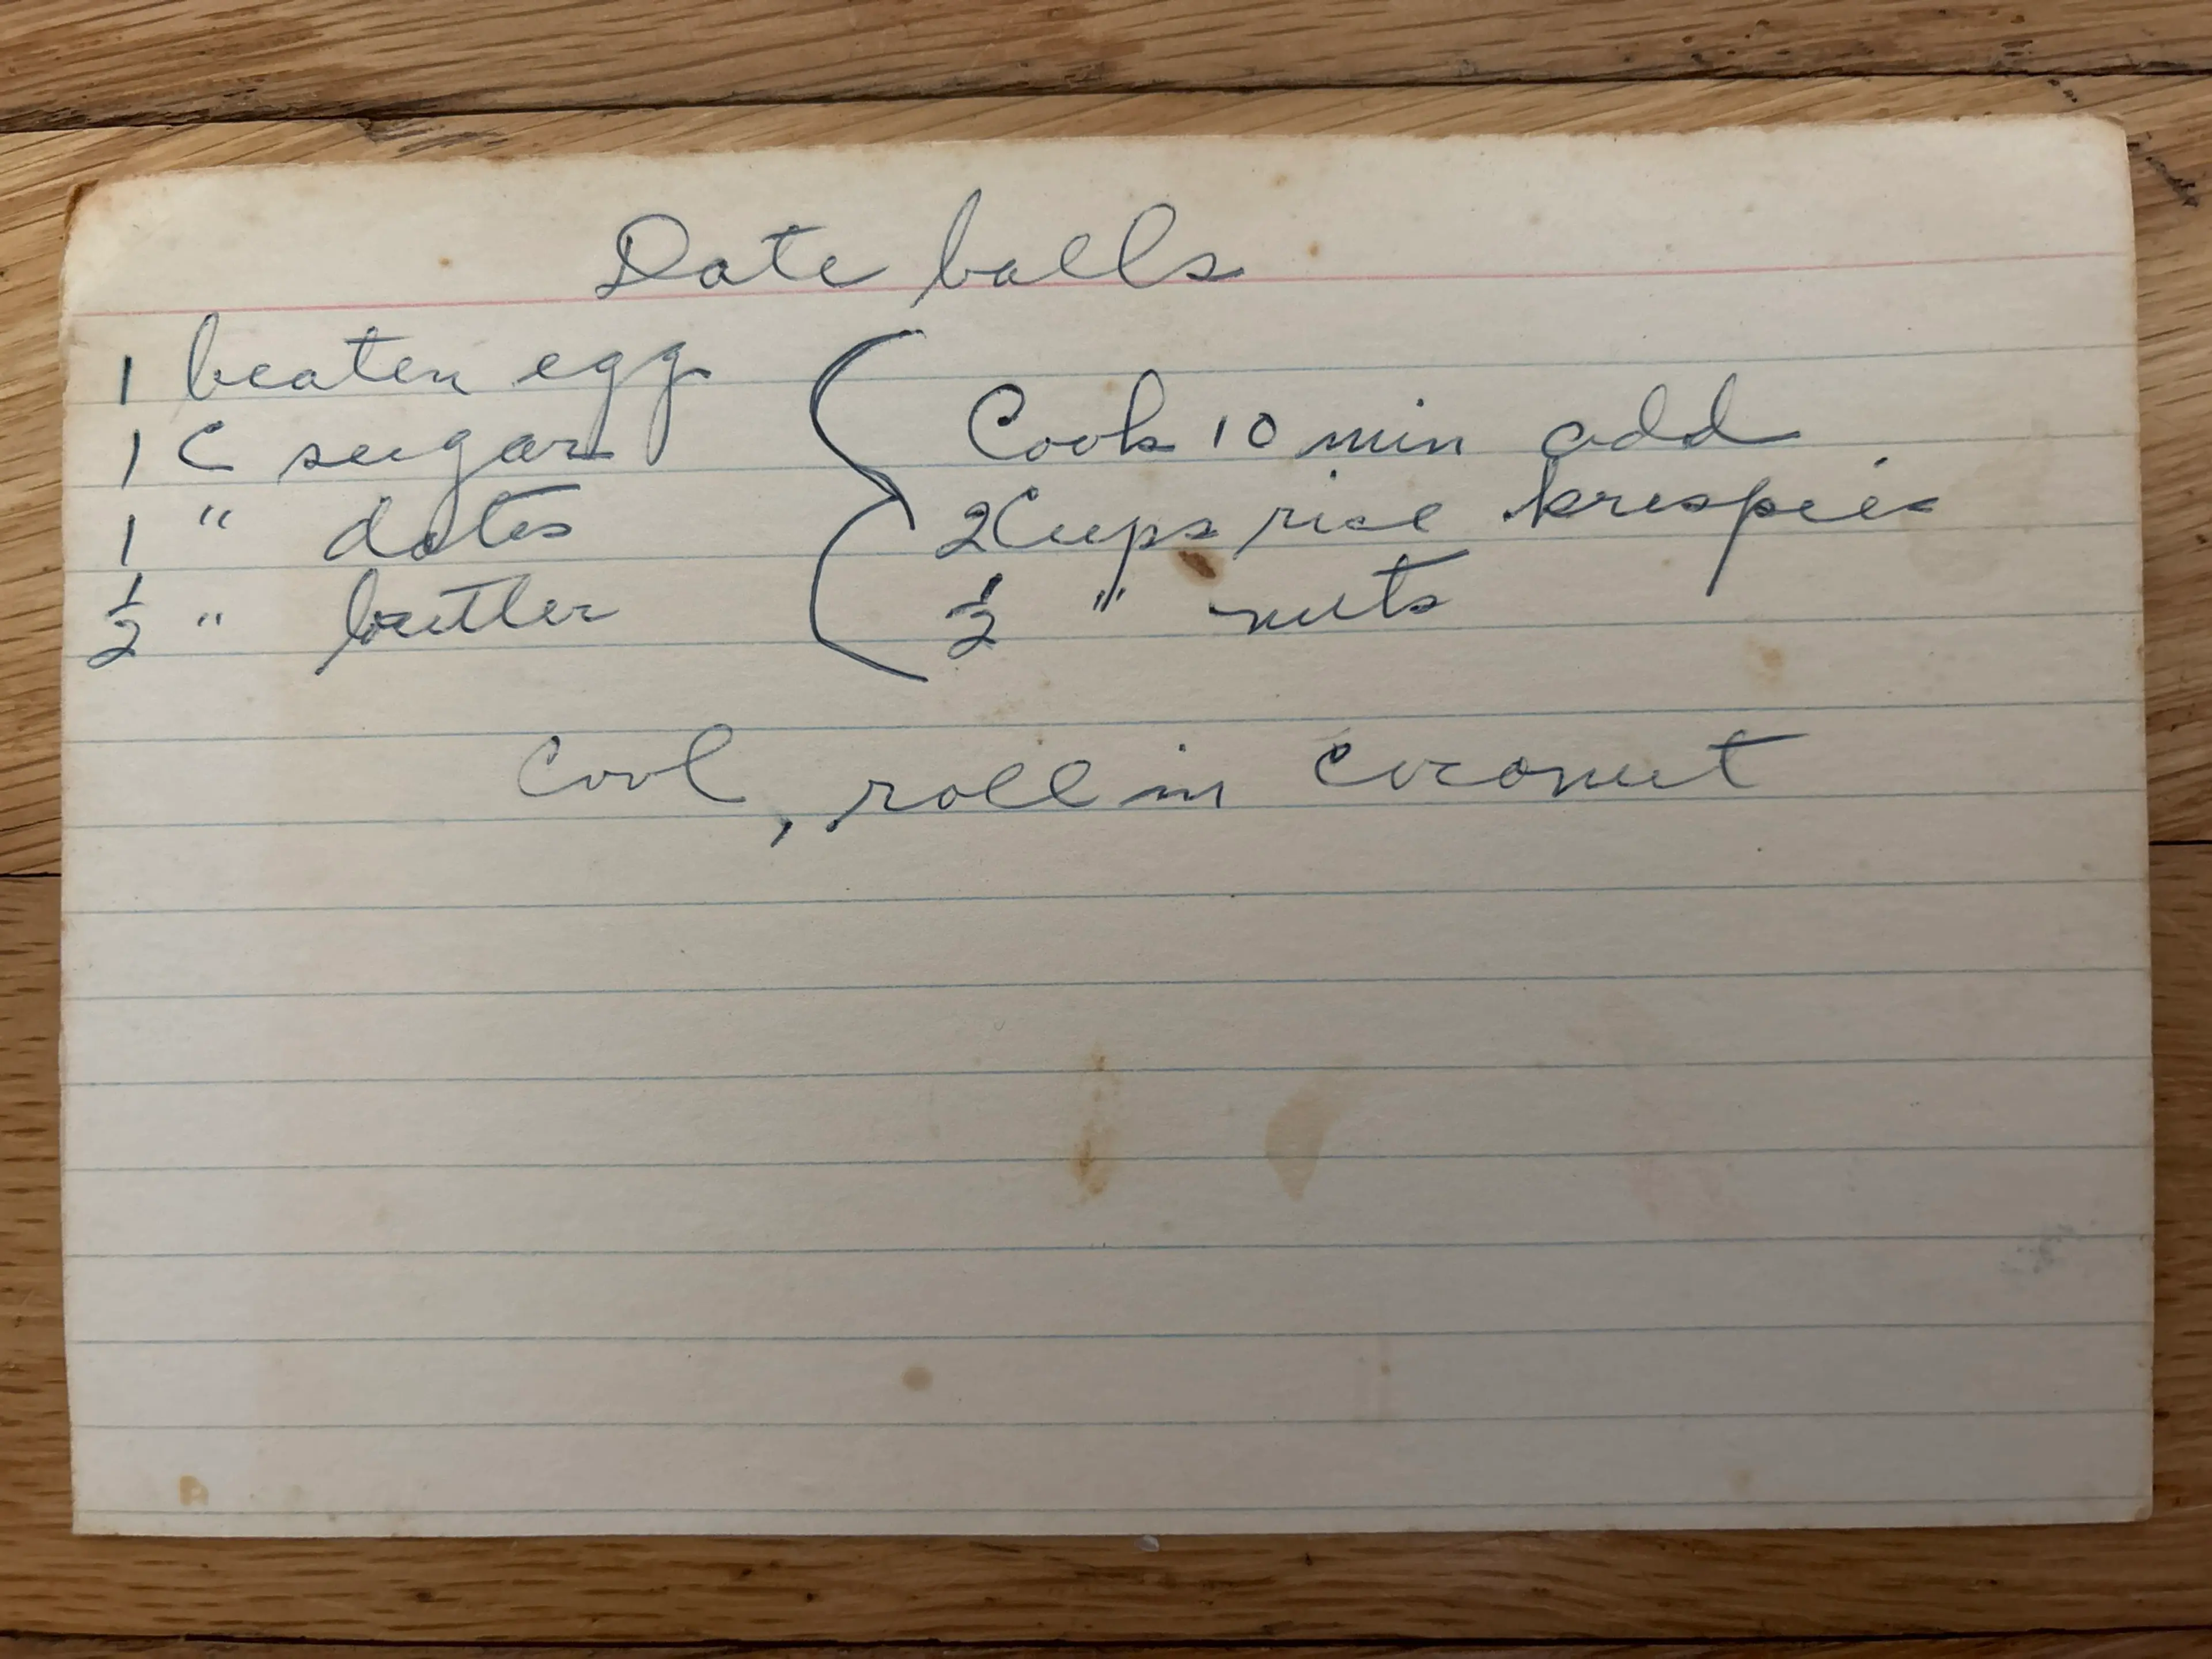 Date balls
1 beaten egg
1 C sugar
1 " dates
1/2 " butter
Cook 10 min add
2 Cups rice krispies
1/2 " nuts
Cool, roll in coconut